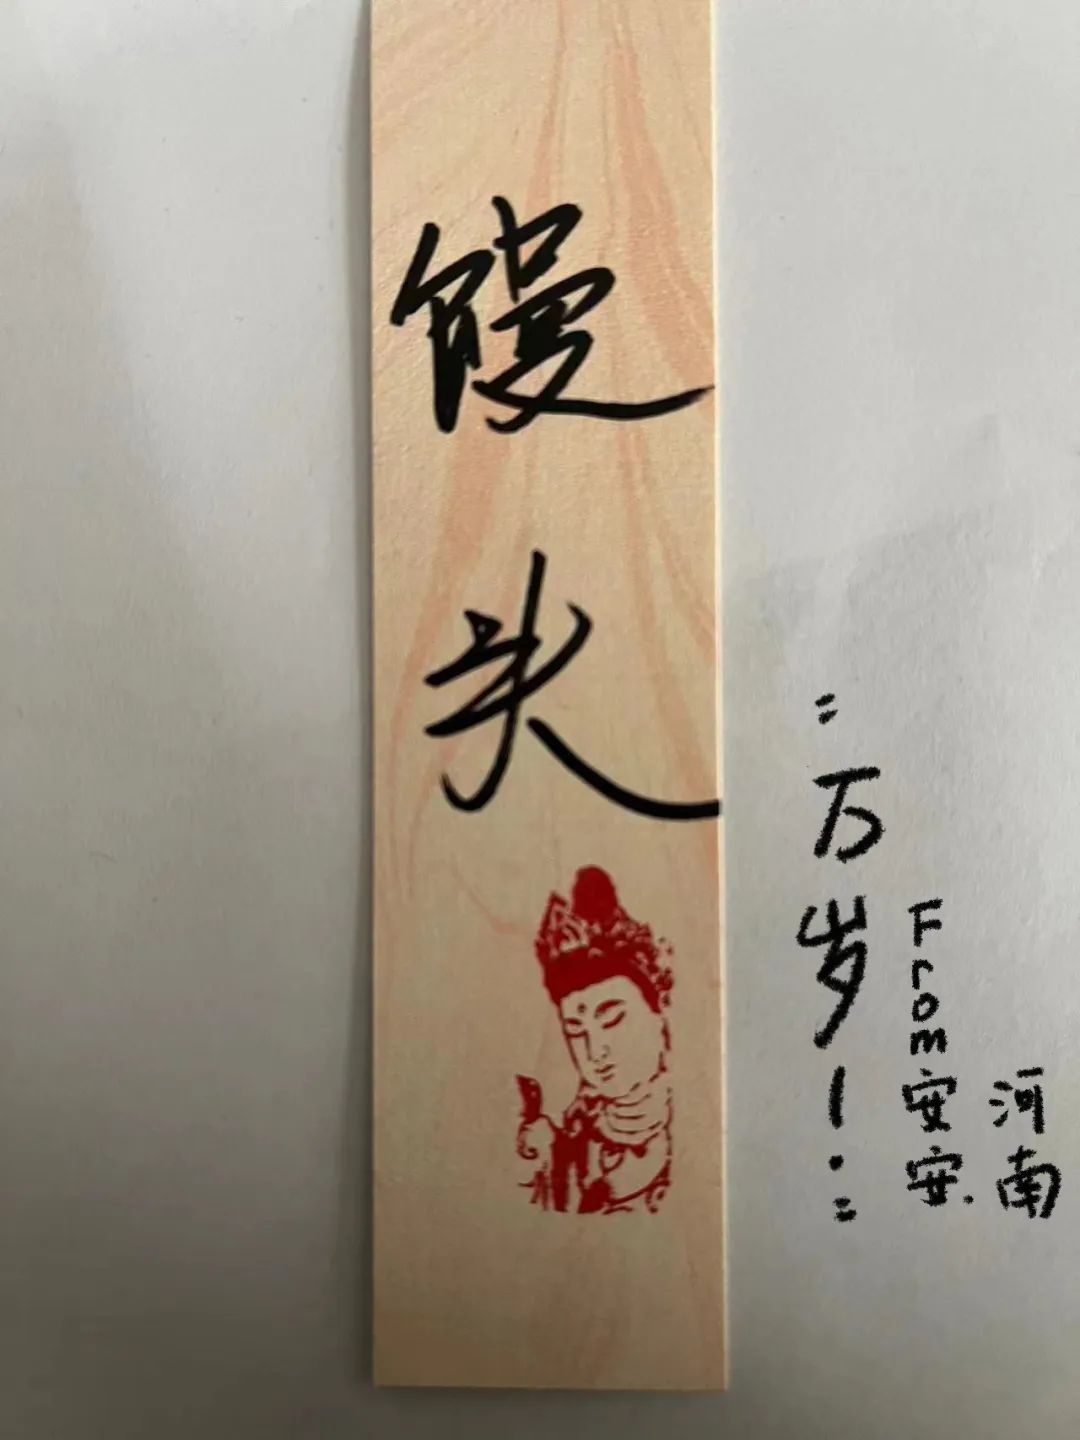 馒头
"万岁！"
From安安.
河南